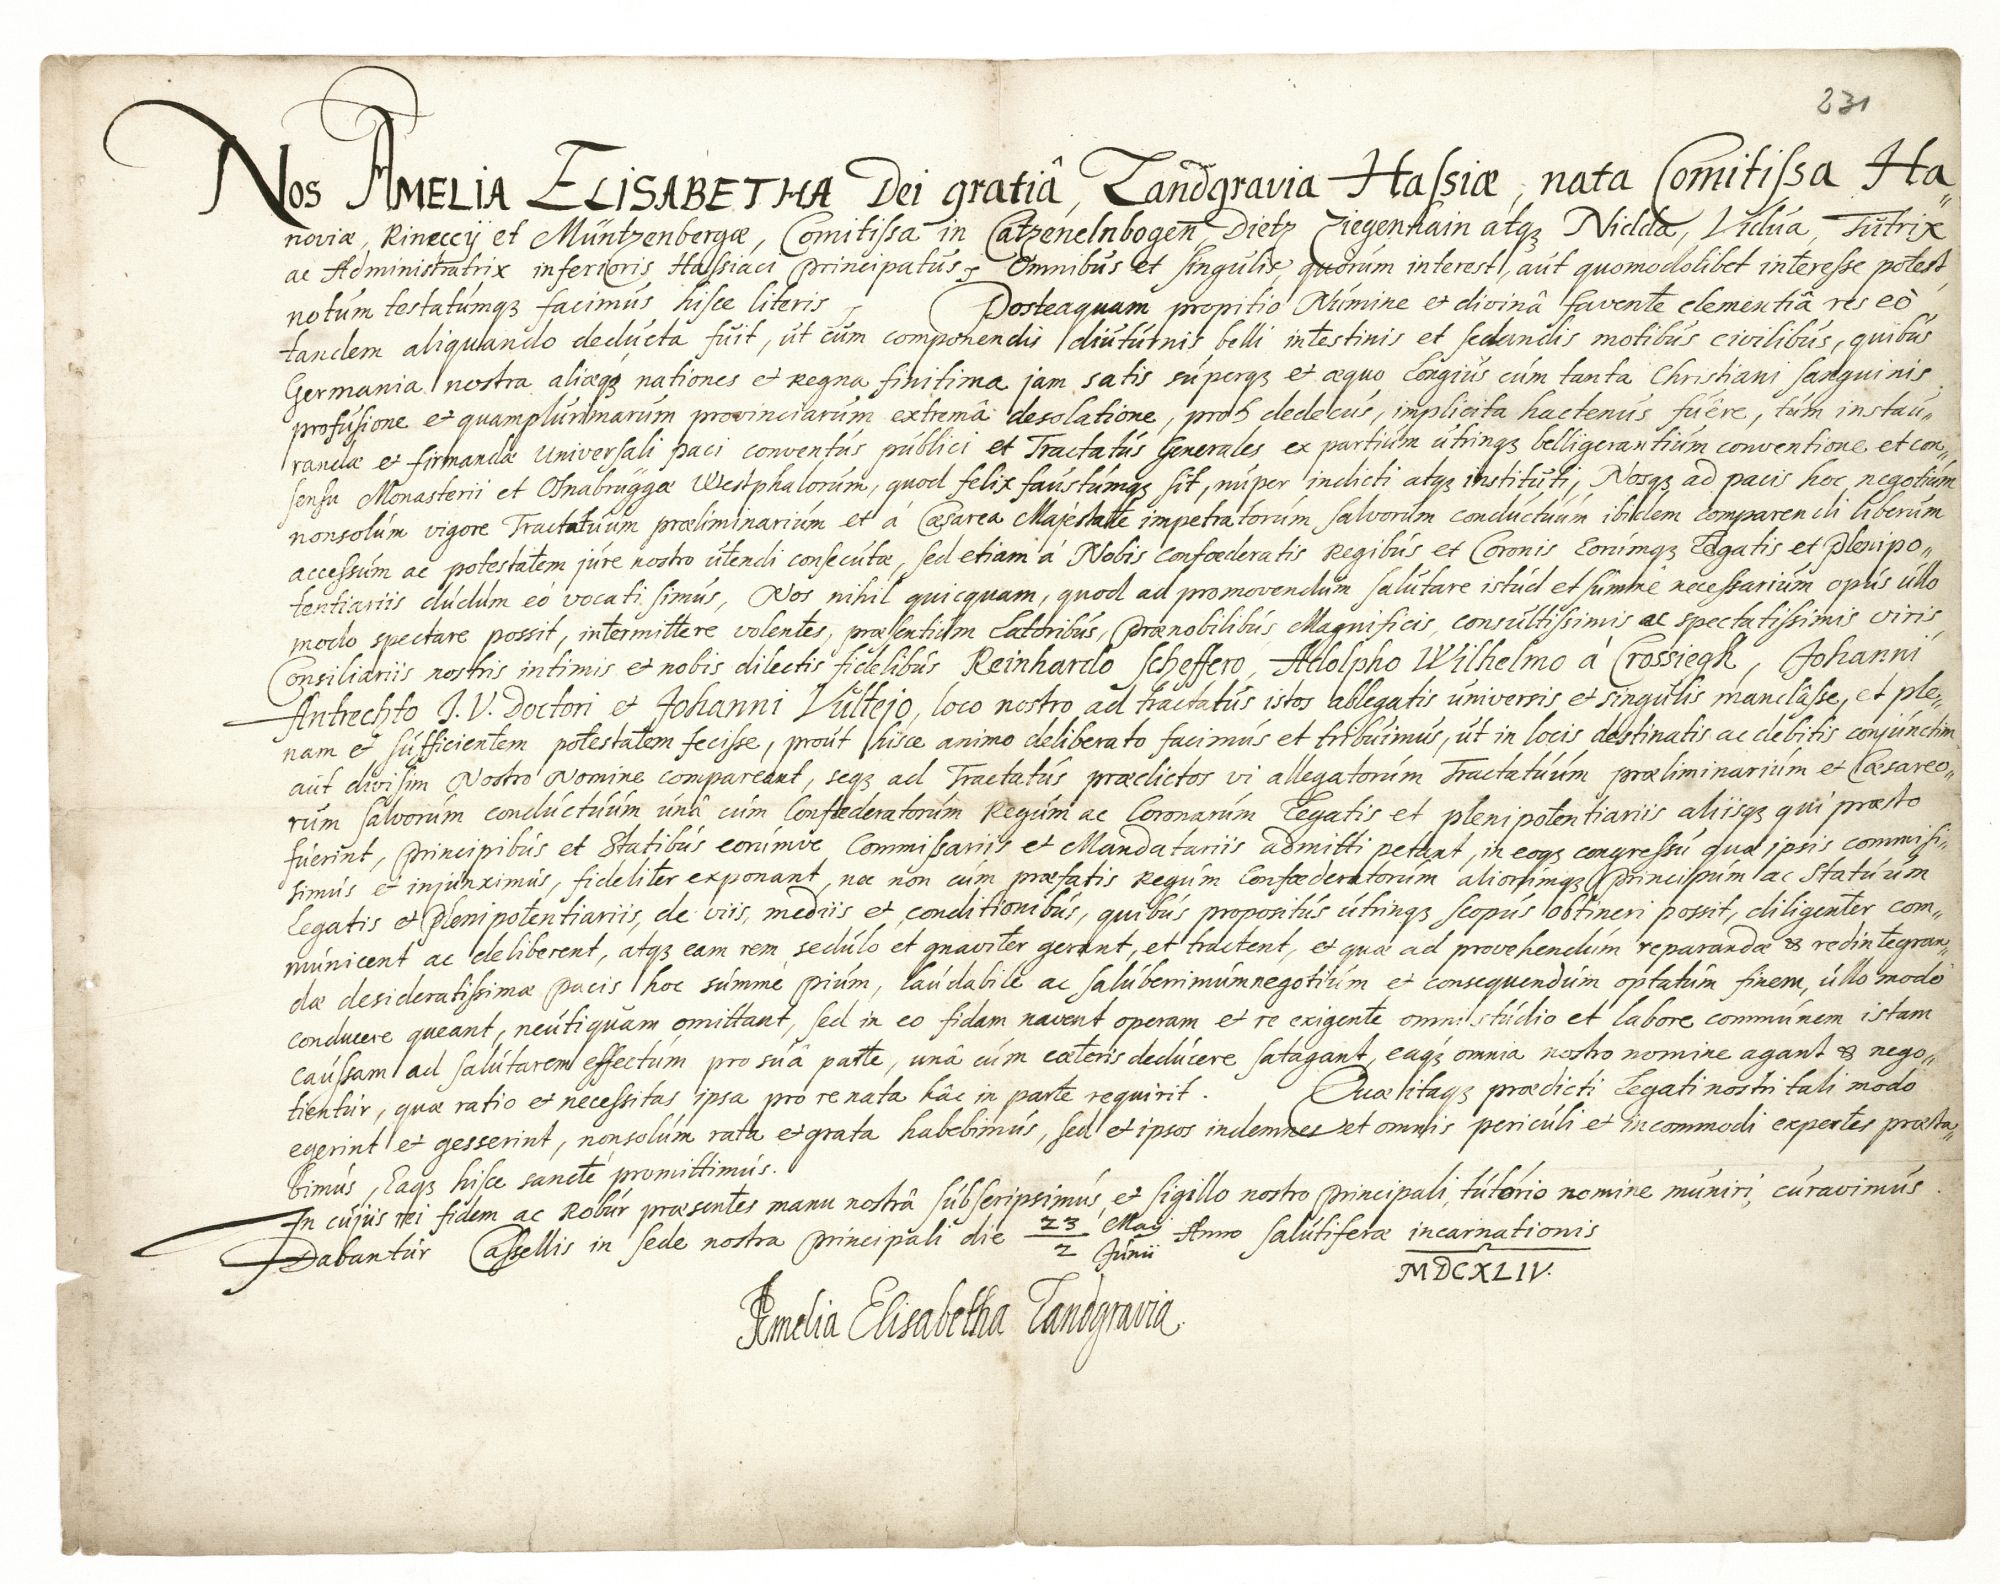 231
Nos Amelia Elisabetha Dei gratiâ, Landgravia Hassiæ, nata Comitissa Ha„
noviæ, Rineccij et Müntzenbergæ, Comitissa in Catzenelnbogen, Dietz, Ziegenhain atqꝫ Nidda, Vidua, Tutrix
ac Administratrix inferioris Hassiaci Principatus, Omnibus et singulis, quorum interest, aut quomodolibet interesse potest,
notum testatumqꝫ facimus hisce literis Posteaquam propitio Numine et divinâ favente clementiâ res eò
tandem aliquando deducta fuit, ut cum componendis diuturnis belli intestinis et sedandis motibus civilibus, quibus
Germania nostra aliæqꝫ nationes et Regna finitima jam satis superqꝫ et æquo longius cum tanta Christiani sanguinis
profusione et quamplurimarum provinciarum extremâ desolatione, proh dedecus, implicita hactenus fuêre, tum instau„
randæ et firmandæ Universali paci conventus publici et Tractatus Generales ex partium utrinqꝫ belligerantium conventione et con„
sensu Monasterii et Osnabruggæ Westphalorum, quod felix faustumqꝫ sit, nuper indicti atqꝫ instituti, Nosqꝫ ad pacis hoc negotium
nonsolum vigore Tractatuum præliminarium et à Cæsarea Majestate impetratorum salvorum conductuum ibidem comparendi liberum
accessum ac potestatem jure nostro utendi consecutæ, sed etiam à Nobis Confœderatis Regibus et Coronis Eorumqꝫ Legatis et Plenipo„
tentiariis dudum eò vocati simus, Nos nihil quicquam, quod ad promovendum salutare istud et summè necessarium opus ullo
modo spectare possit, intermittere volentes, præsentium Latoribus, Prænobilibus Magnificis, consultissimis ac spectatissimis viris
Consiliariis nostris intimis et nobis dilectis fidelibus Reinhardo Scheffero, Adolpho Wilhelmo à Crossiegk, Johanni
Antrechto J. V. Doctori et Johanni Vultejo, loco nostro ad tractatus istos ablegatis universis et singulis mandâsse, et ple„
nam et sufficientem potestatem fecisse, prout hisce animo deliberato facimus et tribuimus, ut in locis destinatis ac debitis conjunctim
aut divisim Nostro Nomine compareant, seqꝫ ad Tractatus prædictos vi allegatorum Tractatuum præliminarium et Cæsareo„
rum salvorum conductuum unâ cum Confœderatorum Regum ac Coronarum Legatis et plenipotentiariis aliisqꝫ qui præsto
fuerint, Principibus et Statibus eorumve Commissariis et Mandatariis admitti petant, in eoqꝫ congressu quæ ipsis commisi„
simus et injunximus, fideliter exponant, nec non cum præfatis Regum Confœderatorum aliorumqꝫ Principum ac Statuum
Legatis et Plenipotentiariis, de viis, mediis et conditionibus, quibus propositus utrinqꝫ scopus obtineri possit, diligenter com„
municent ac deliberent, atqꝫ eam rem sedulo et gnaviter gerant, et tractent, et quæ ad provehendum reparandæ & redintegran„
dæ desideratissimæ pacis hoc summè pium, laudabile ac saluberimum negotium et consequendum optatum finem, ullo modo
conducere queant, neutiquam omittant, sed in eo fidam navent operam et re exigente omni studio et labore communem istam
caussam ad salutarem effectum pro suâ parte, unâ cum cæteris deducere satagant, eaqꝫ omnia nostro nomine agant & nego„
tientur, quæ ratio et necessitas ipsa pro re nata hâc in parte requirit. Quæ itaqꝫ prædicti Legati nostri tali modo
egerint et gesserint, nonsolum rata et grata habebimus, sed et ipsos indemnes et omnis periculi et incommodi expertes præsta„
bimus, Eaqꝫ hisce sanctè promittimus.
In cujus rei fidem ac Robur præsentes manu nostrâ subscripsimus, et sigillo nostro principali, tutorio nomine muniri, curavimus.
Dabantur Cassellis in sede nostra principali die 23 Maij / 2 Junii Anno salutiferæ incarnationis
MDCXLIV.
Amelia Elisabetha Landgravia.